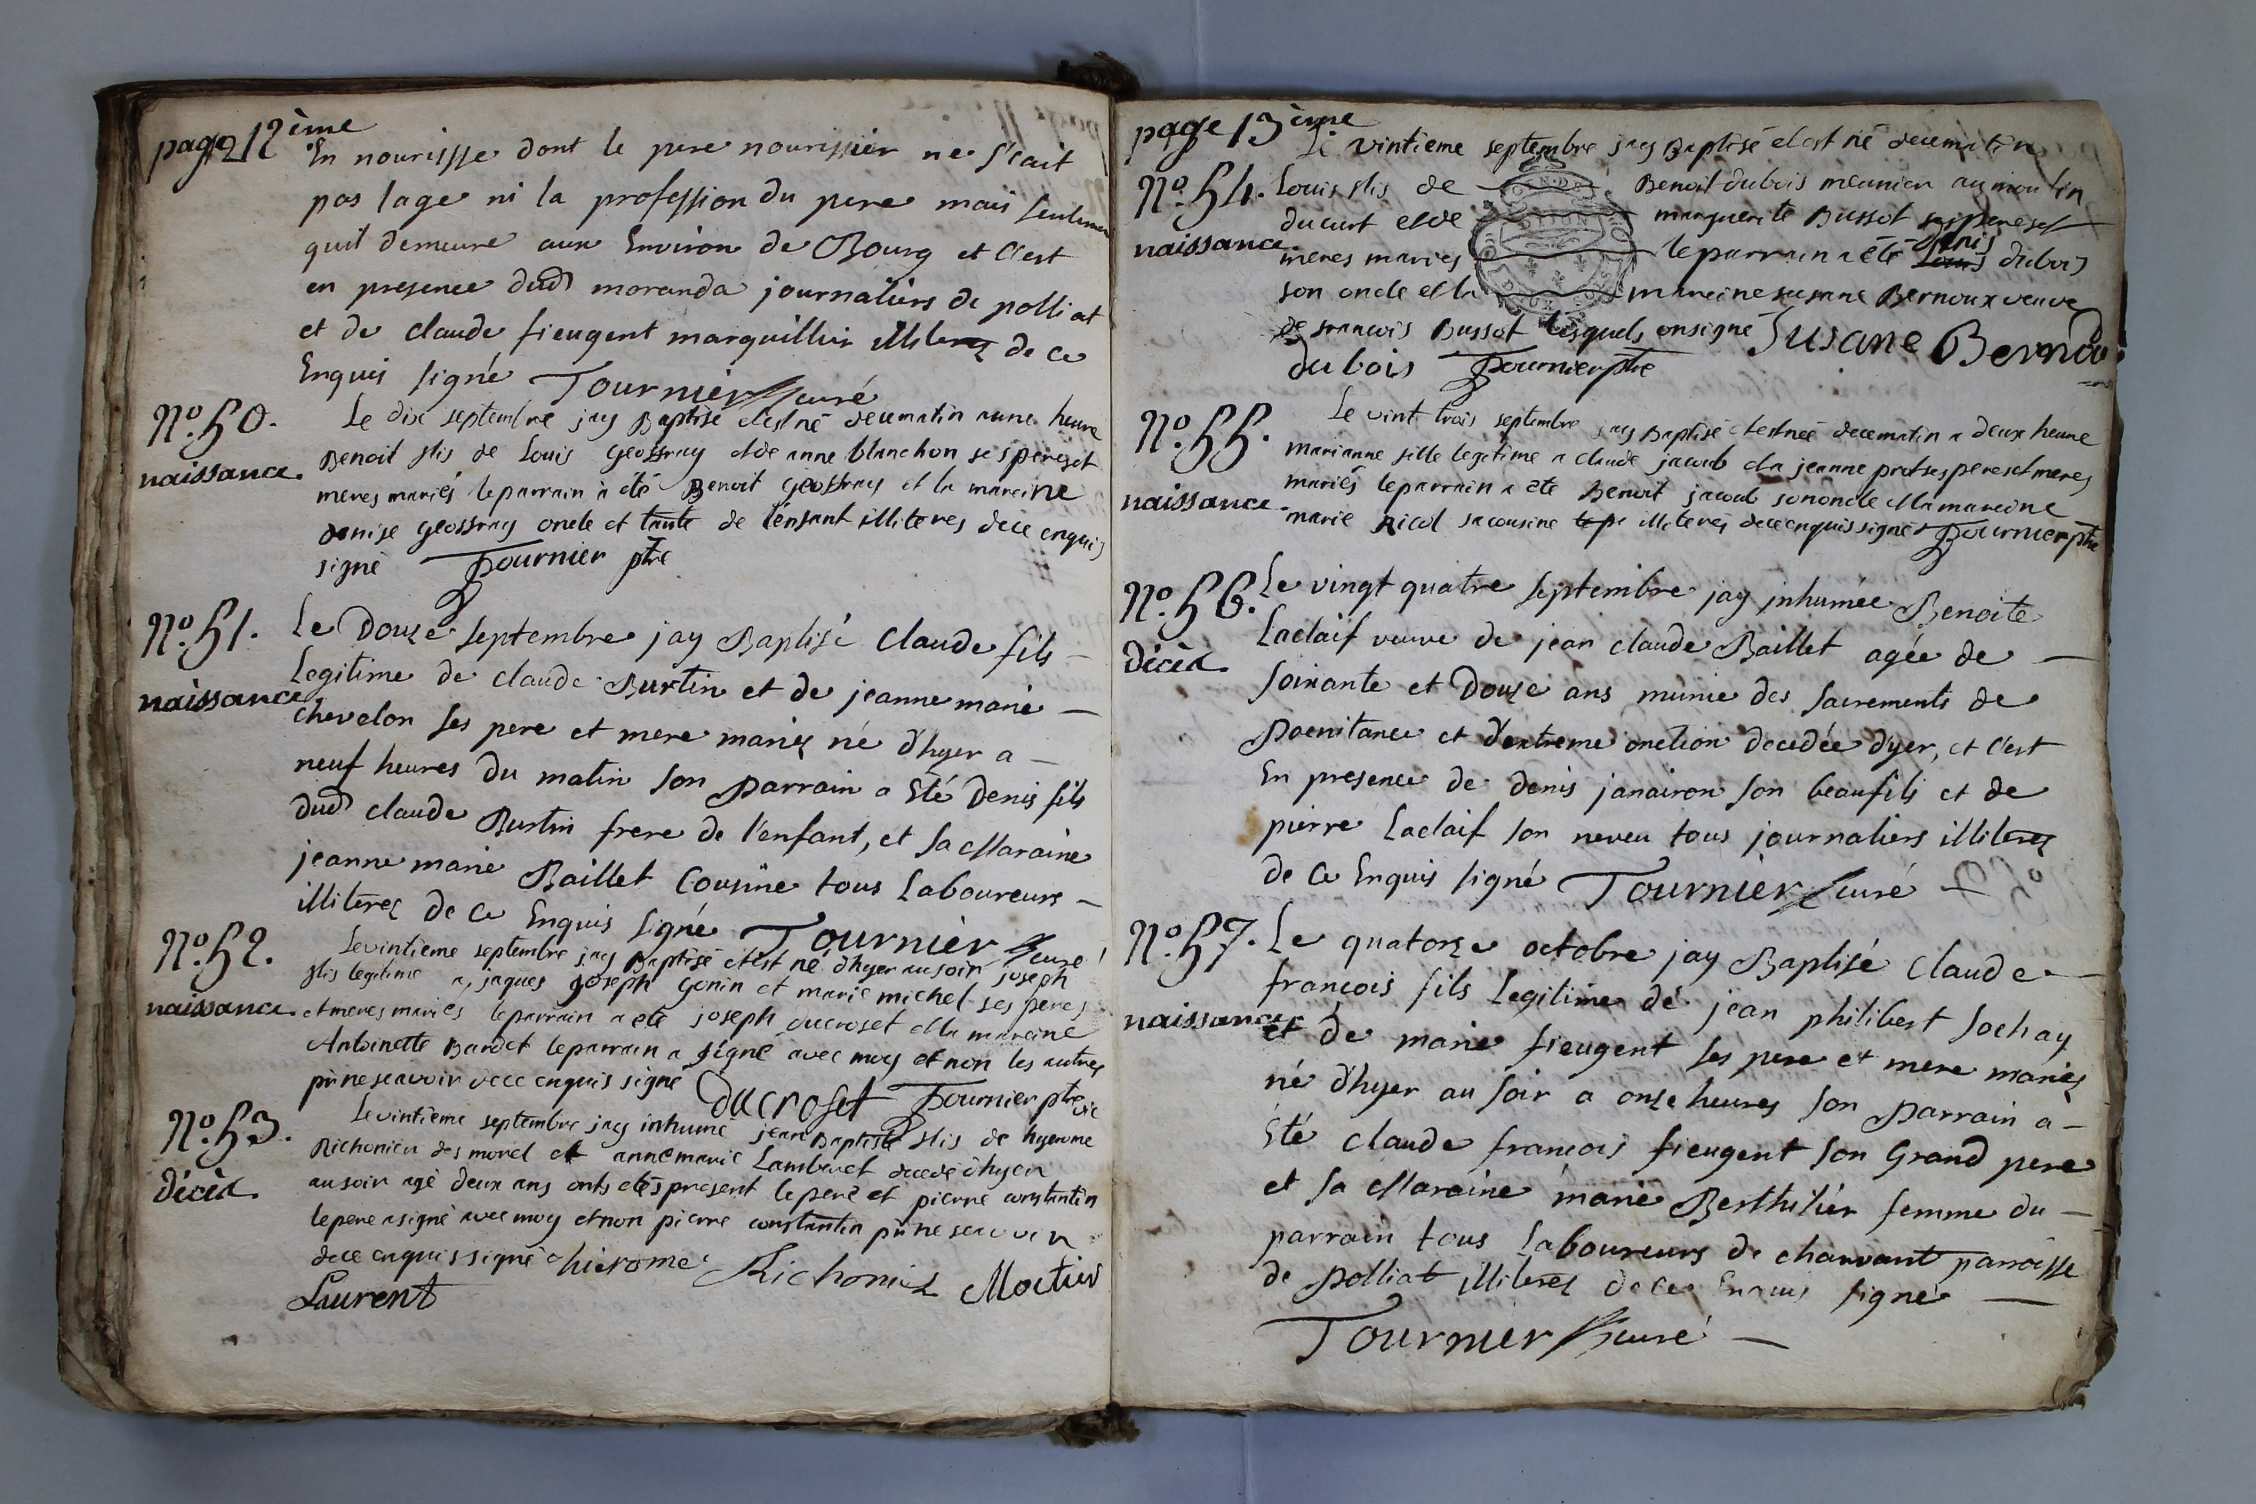 page 12 ème
En nourisse dont le pere nourissier ne s'cait
pas l'age ni la profession du pere mais seulement
quil demeure aux Environ de Bourg et c'est
en presence dud moranda journaliers de polliat
et de claude fieugent marguillier illiterez de ce
Enquis signé Tournier curé
No. 50.
naissance.
Le dix septembre jay Baptisé et est né de ce matin a une heure
Benoit fils de Louis Geoffray et de anne blanchon ses peres et
meres mariés le parrain à été Benoit Geoffray et la mareine
denise Geoffray oncle et tante de l'enfant illiteres de ce enquis
signé Tournier ptre
No. 51.
naissance
Le Douze septembre jay Baptisé Claude fils
Legitime de claude Burtin et de jeanne marie
chevelon ses pere et mere mariez né d'hyer a
neuf heures du matin son parrain a Eté Denis fils
dud claude Burtin frere de l'enfant, et sa Maraine
jeanne marie Baillet Cousine tous Laboureurs
illiterez de ce Enquis signé Tournier curé
No. 52.
naissance.
Le vintieme septembre jay Baptisé et est né d'hyer au soir joseph
fils legitime a jaques joseph Gonin et marie michel ses peres
et meres mariés le parrain a été joseph ducroset et la mareine
Antoinette Bardet le parrain a signé avec moy et non les autres
pr ne scavoir de ce enquis signé ducroset Tournier ptre vic
No. 53.
décéd.
Le vintieme septembre jay inhumé jean Baptiste fils de hyerome
Richonier des morel et annemarie Lamberet decedé d'hyer
au soir agé deux ans onts etés present le pere et pierre constantin
le pere a signé avec moy et non pierre constantin pr ne scavoir
de ce enquis signé hierome Richonier Moctier
Laurent
page 13 ème
Le vintieme septembre jay Baptisé et est né de ce matin
No. 54.
naissance.
Louis fils de Benoit dubois meunier au moulin
du curt et de marguerite Bussot ses peres et
meres mariés le parrain a été Louis Denis dubois
son oncle et la mareine susane Bernoux veuve
de francois Bussot lesquels on signé Susane Bernou
dubois Tournier ptre
No. 55.
naissance.
Le vint trois septembre jay Baptisé et est née de ce matin a deux heure
marianne fille legitime a claude jacoub et a jeanne prot ses peres et meres
mariés le parrain a été Benoit jacoub son oncle et la mareine
marie nicol sa cousine illiterés de ce enquis signé Tournier ptre
No. 56.
décéd.
Le vingt quatre septembre jay inhumée Benoite
Laclaif veuve de jean claude Baillet agée de
soixante et Douze ans munie des sacrements de
Poenitance et d'extreme onction decedée d'yer, et c'est
En presence de denis janairon son beaufils et de
pierre Laclaif son neveu tous journaliers illiterez
de ce Enquis signé Tournier curé
No. 57.
naissance
Le quatorze octobre jay Baptisé Claude
francois fils Legitime de jean philibert sochay
et de marie fieugent ses pere et mere mariez
né d'hyer au soir a onze heures son parrain a
Eté claude francois fieugent son Grand pere
et sa Maraine marie Berthilier femme du
parrain tous Laboureurs de charvant parroisse
de Polliat illiterez de ce Enquis signé
Tournier curé